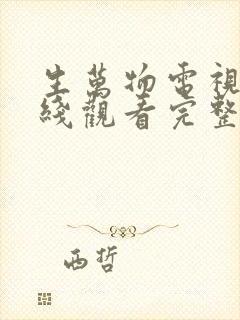 生萬物電視
綫觀看完整
西哲